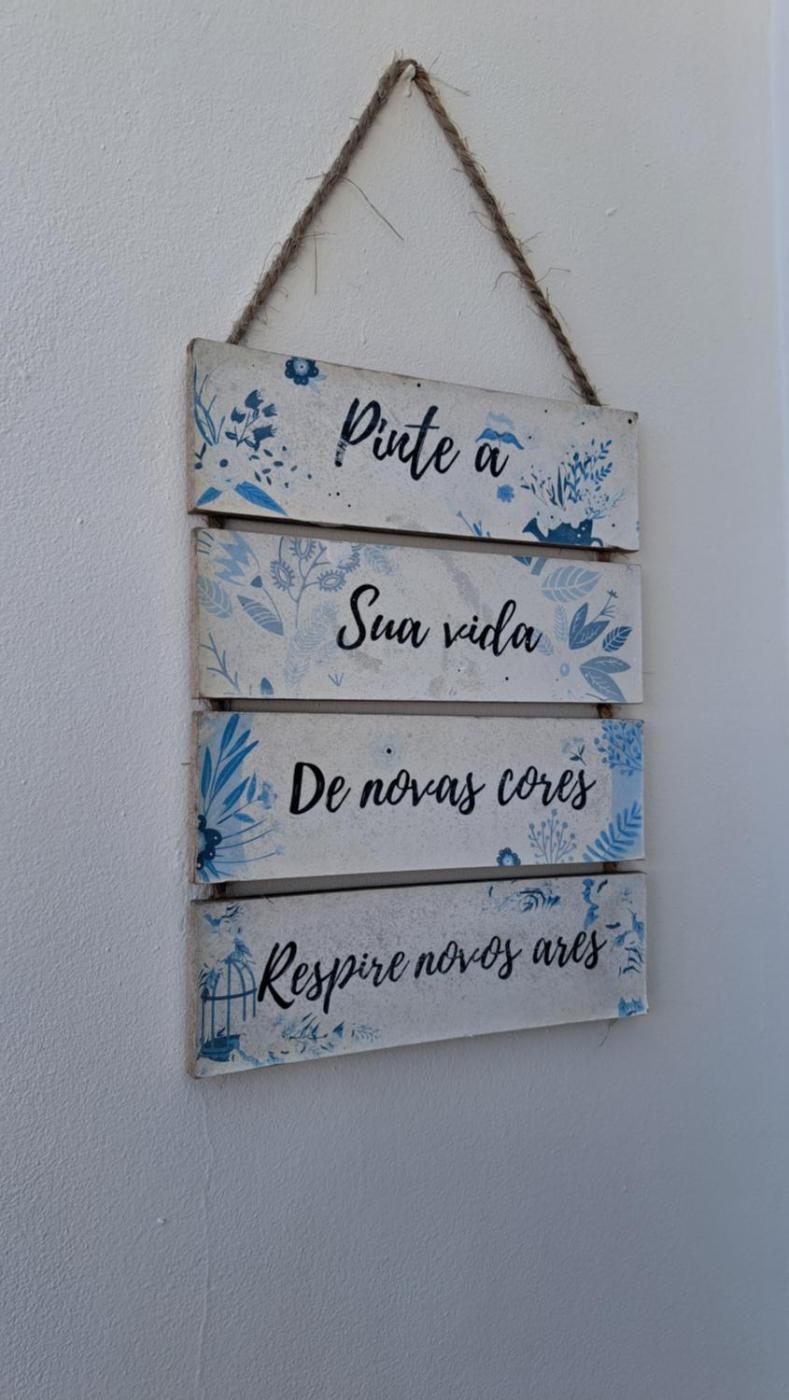 Pinte a
Sua vida
De novas cores
Respire novos ares